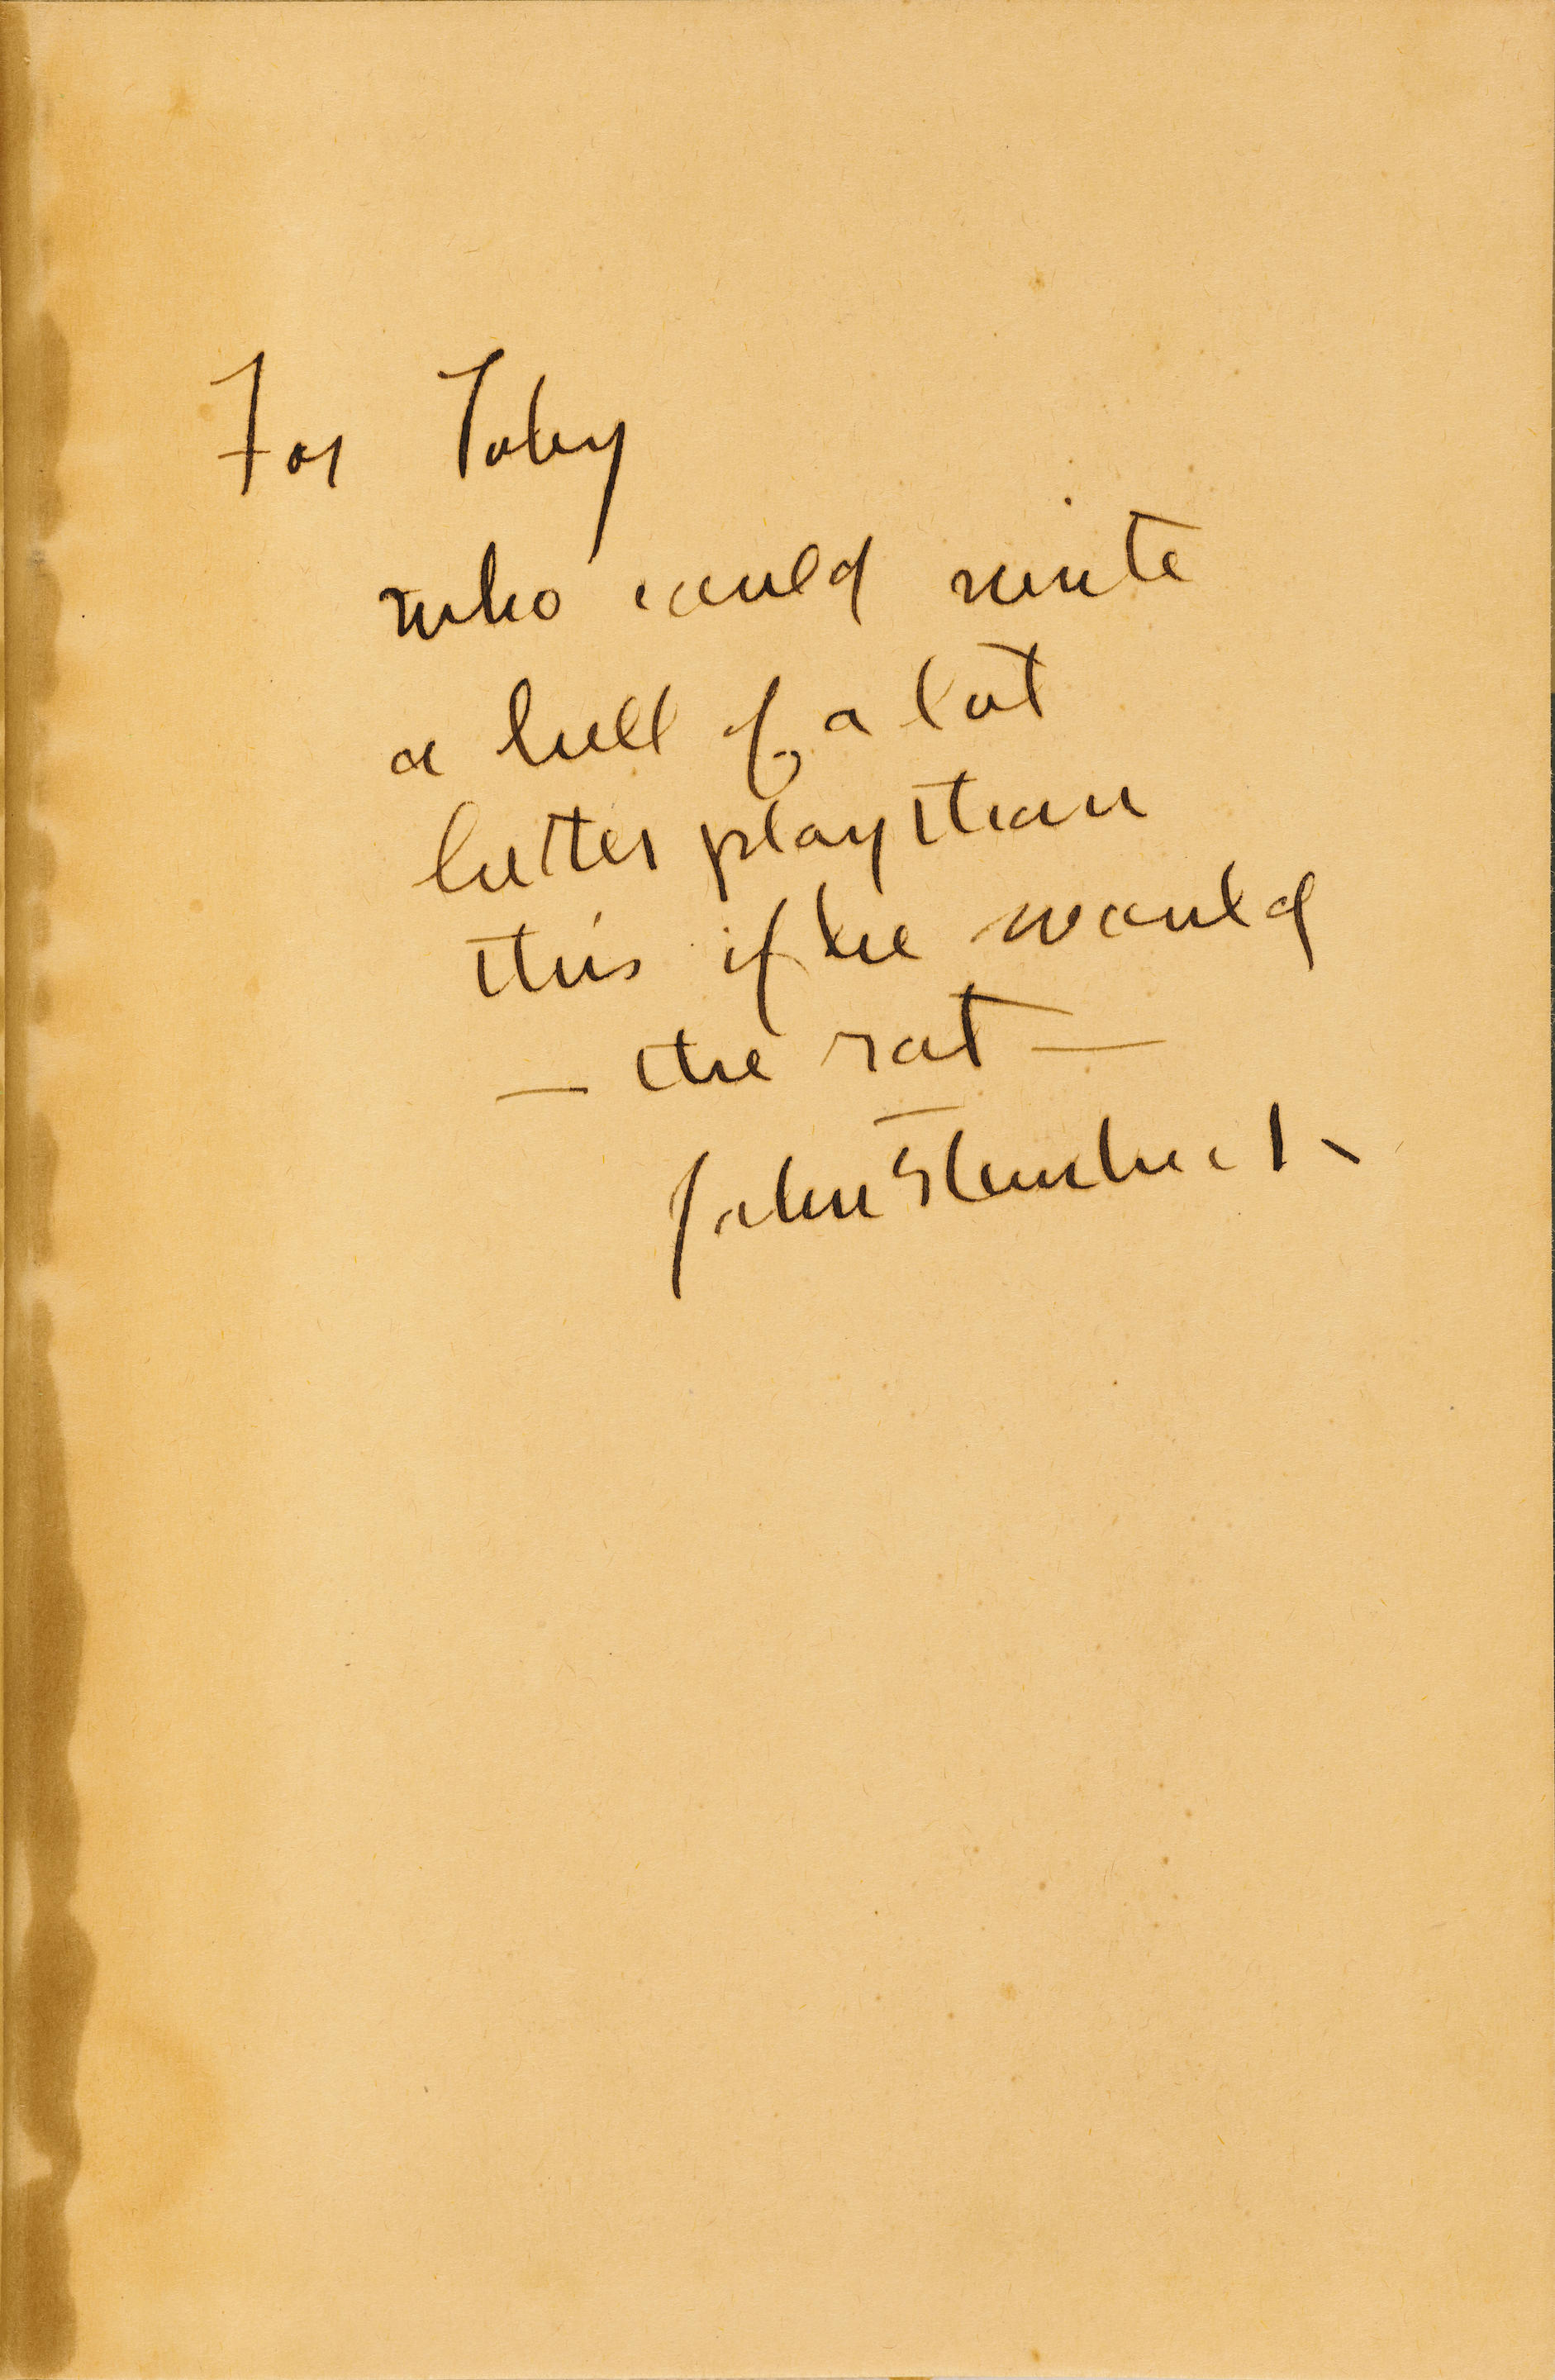 For Toby
who could write
a hell of a lot
better play than
this if he would
— the rat —
John Steinbeck